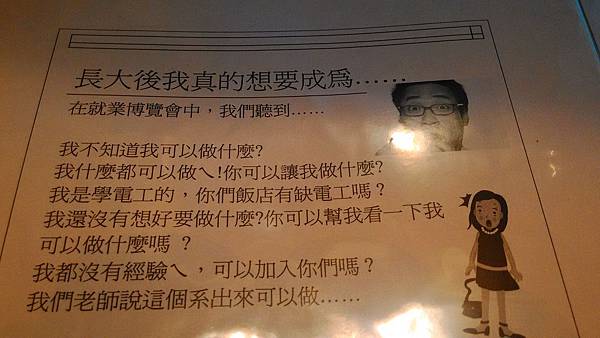 長大後我真的想要成為……
在就業博覽會中，我們聽到……
我不知道我可以做什麼?
我什麼都可以做ㄟ!你可以讓我做什麼?
我是學電工的，你們飯店有缺電工嗎？
我還沒有想好要做什麼?你可以幫我看一下我
可以做什麼嗎 ？
我都沒有經驗ㄟ，可以加入你們嗎？
我們老師說這個系出來可以做……